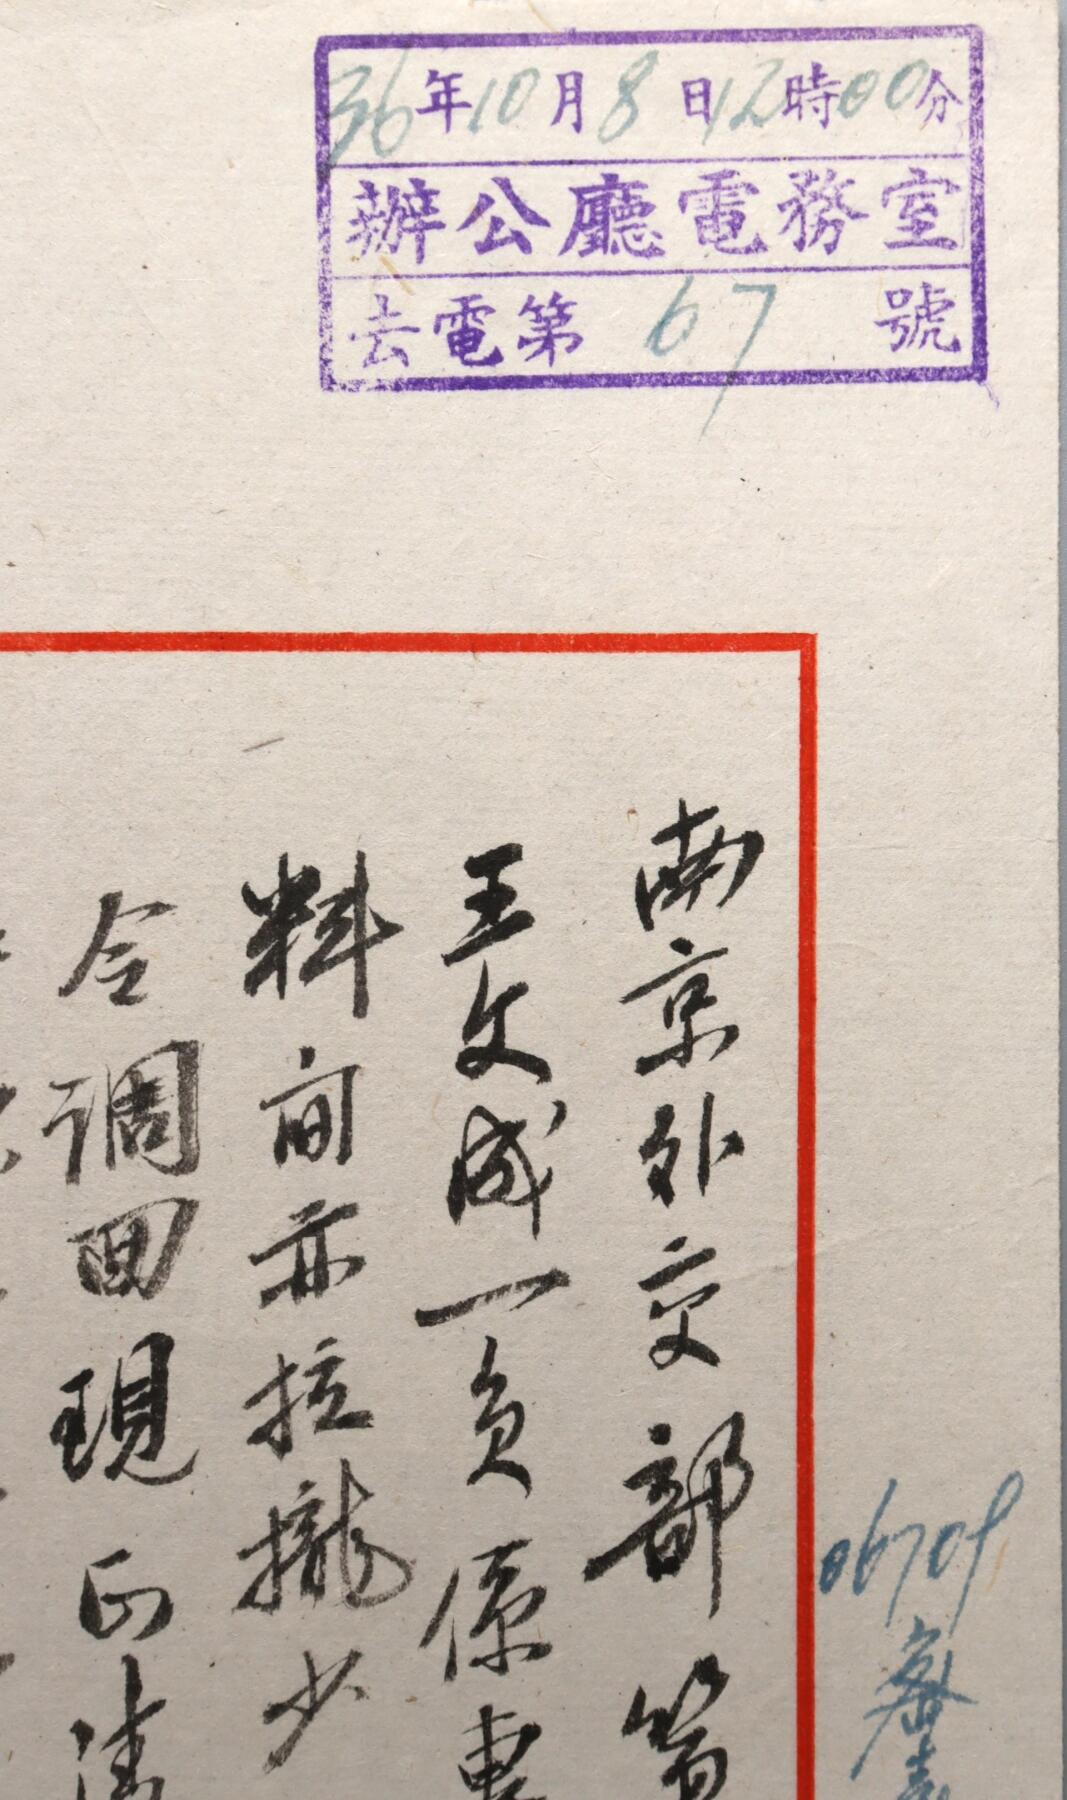 36年10月8日12時00分
辦公廳電務室
去電第67號
南京外交部
王文成一員係專
料間亦拉攏少
令調回現正
06701
密